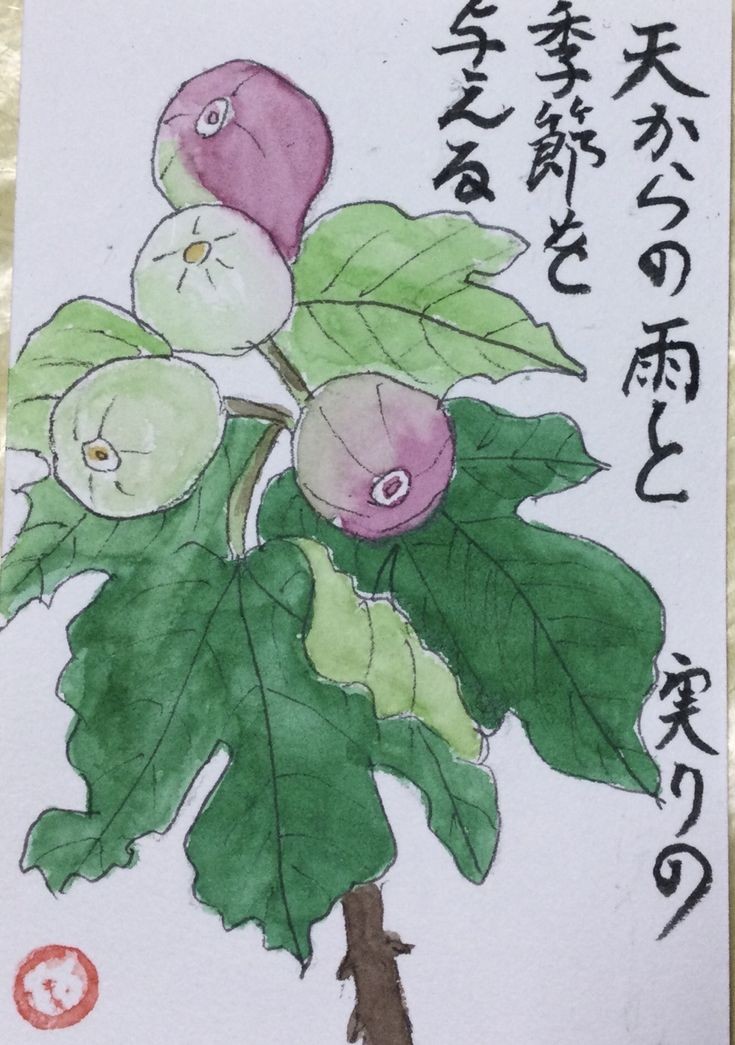 天からの雨と 実りの
季節を
与える